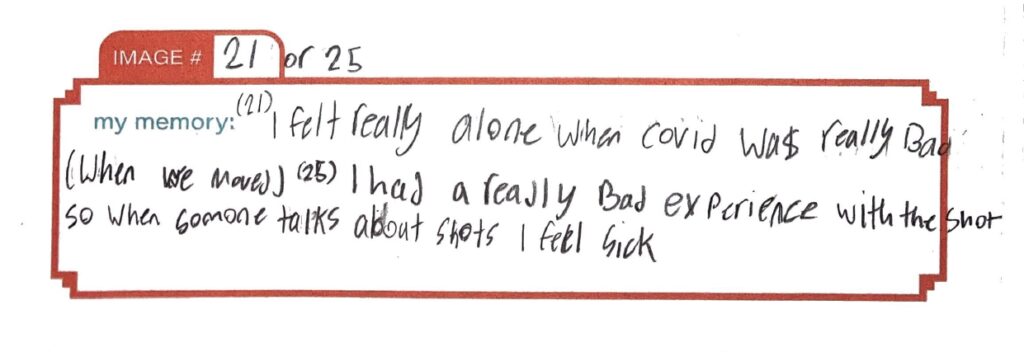 IMAGE # 21 or 25
my memory: (21) I felt really alone when covid was really Bad
(When we moved) (25) I had a really Bad experience with the shot
so when somone talks about shots I feel sick